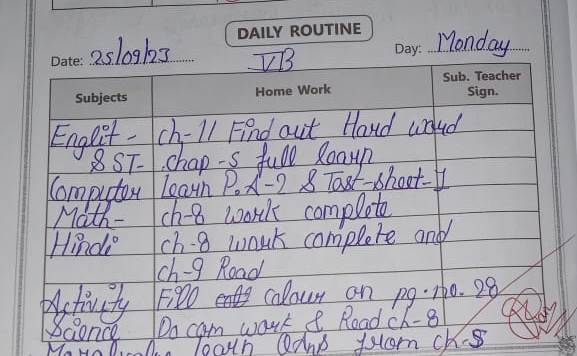 DAILY ROUTINE
Date: 25/09/23 VB Day: Monday
Subjects Home Work Sub. Teacher Sign.
Englit - ch-11 Find out Hard word
SST- chap-5 full learn
Computer learn P.A-2 & Task-sheet-1
Math- ch-8 work complete
Hindi ch-8 work complete and
ch-9 Read
Activity Fill colour on pg.no. 28
Science Do com work & Read ch-8
learn QAns from ch-5